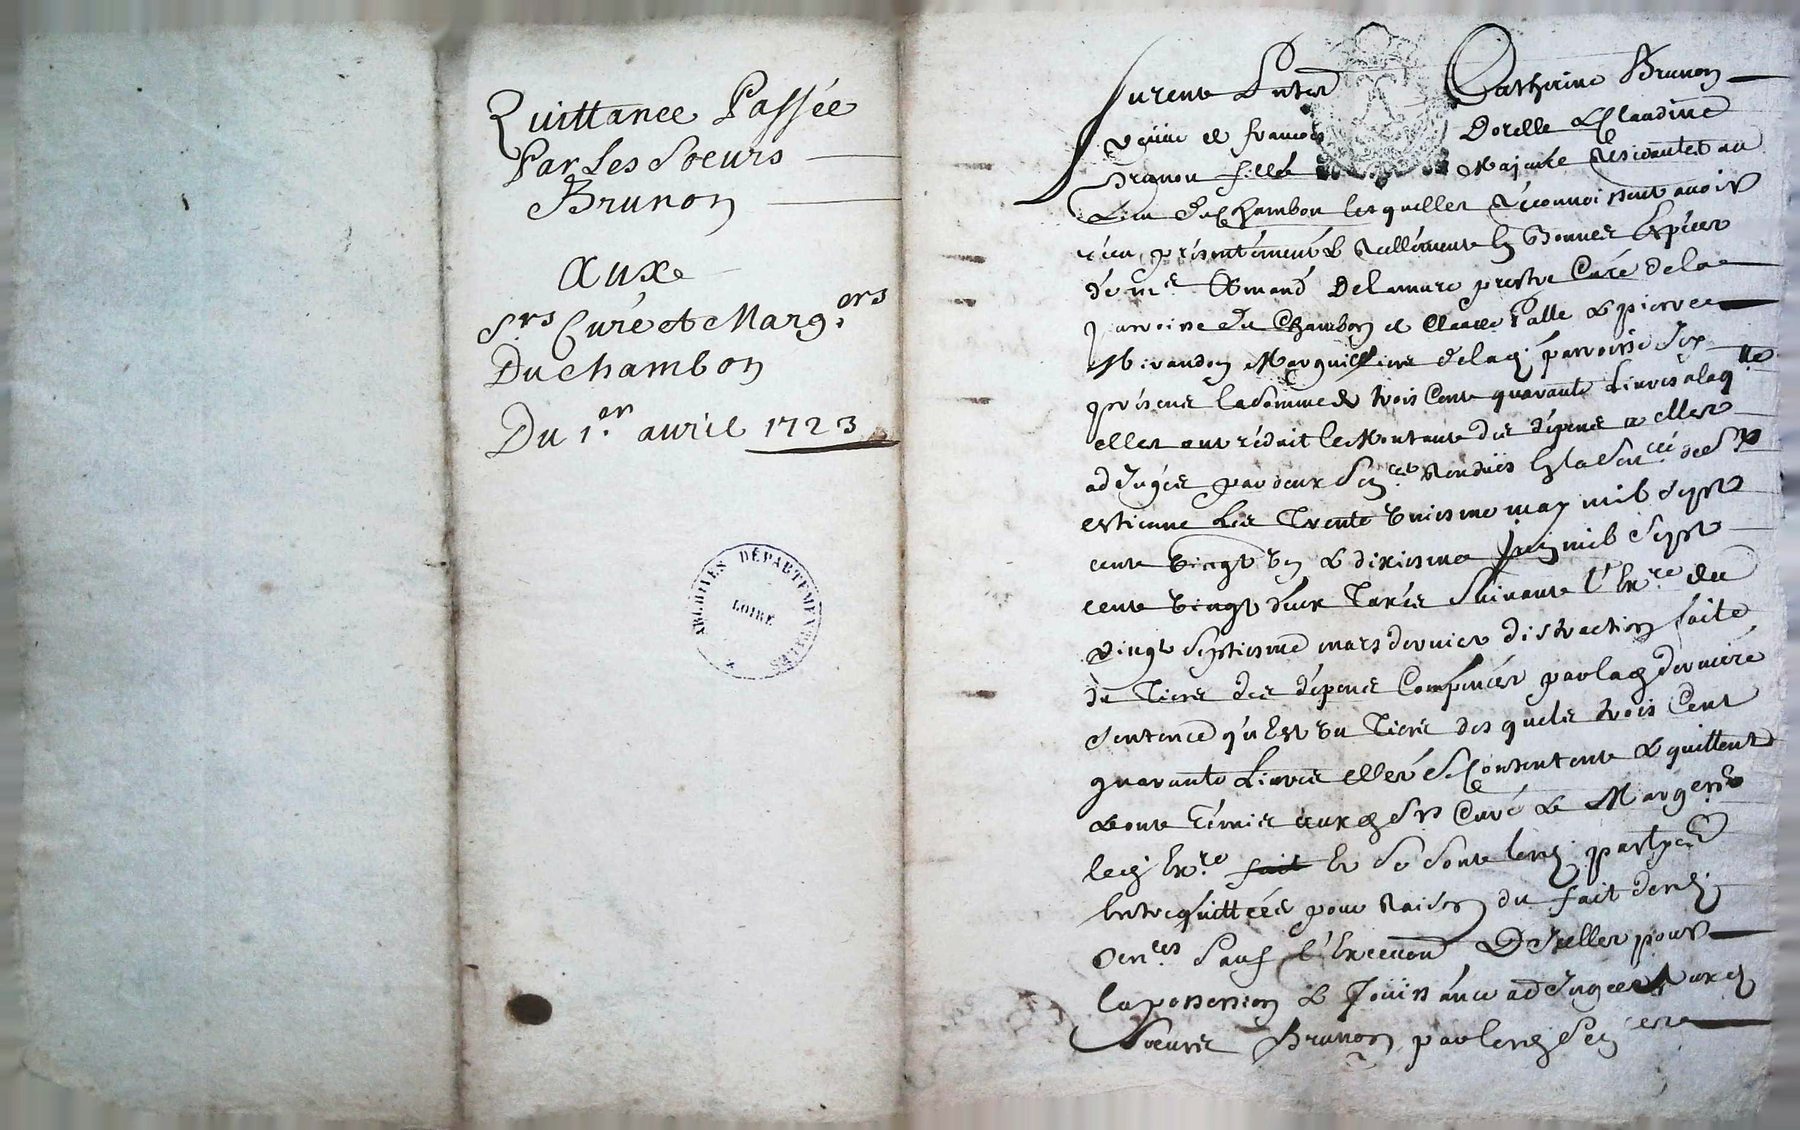 Quittance Passée
Par Les Soeurs
Brunon
Aux
Srs Curé et Marg.ers
Du chambon
Du 1.er avril 1723
ARCHIVES DÉPARTEMENTALES
LOIRE
furent present Catherine Brunon
veuve de francois Dorelle & Claudine
Brunon fille Majeure Residantes au
Lieu du Chambon lesquelles Reconnoissent avoir
réceu présentement & Reellement En Bonnes Espèces
de mre Delamare prestre Curé de la
parroisse du Chambon et Claude Palle & pierre
Mirandon Marguilliers de lad. parroisse Icy
présens la somme de trois Cent quarante Livres a laq.lle
elles ont réduit le Montant des dépens a elles
adjugées par deux Sen.ces Rendües En la Sen.cée de St
estienne Les Trente Uniesme may mil Sept
cent Vingt Un & dixiesme juin mil Sept
cent Vingt deux Taxés Suivant l'Ex.re du
vingt Septiesme mars dernier distraction faite
du Tiers des dépens Compencés par lad. derniere
Sentence qu'Est du Tiers desquels trois Cent
quarante Livres elles se Contentent & quittent
& ont rémis auxd. Srs Curé & Margers
led. Ex.re fait Et Se Sont lesd. partyes
Entrequittées pour Raison du fait desd.
Sen.ces Sauf l'Execution D'Icelles pour
la possession & Joüissance adjugée Auxd.
Soeurs Brunon par lesd. Sen.ces